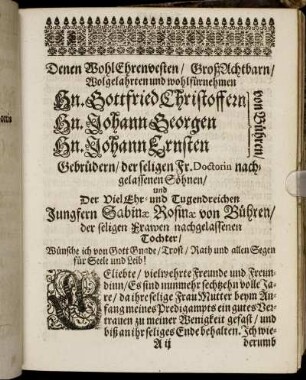 Denen WohlEhrenvesten/ GroßAchtbarn/
Wolgelahrten und wohlfürnehmen
Hn. Gottfried Christoffern
Hn. Johann Georgen
Hn. Johann Ernsten
von Bühren/
Gebrüdern/ der seligen Fr. Doctorin nach
gelassenen Söhnen/
und
Der Viel Ehr- und Tugendreichen
Jungfern Sabinæ Rosinæ von Bühren/
der seligen Frawen nachgelassenen
Tochter/
Wünsche ich von Gott Gnade/ Trost/ Rath und allen Segen
für Seele und Leib!
Geliebte/ vielwehrte Freunde und Freun-
dinn/ Es sind nunmehr sechtzehn volle Ja-
re/ da ihre selige Frau Mutter beym An-
fang meines Predigampts ein gutes Ver-
trauen zu meiner Wenigkeit gefast/ und
biß an ihr seliges Ende behalten. Ich wie-
A ij
derumb